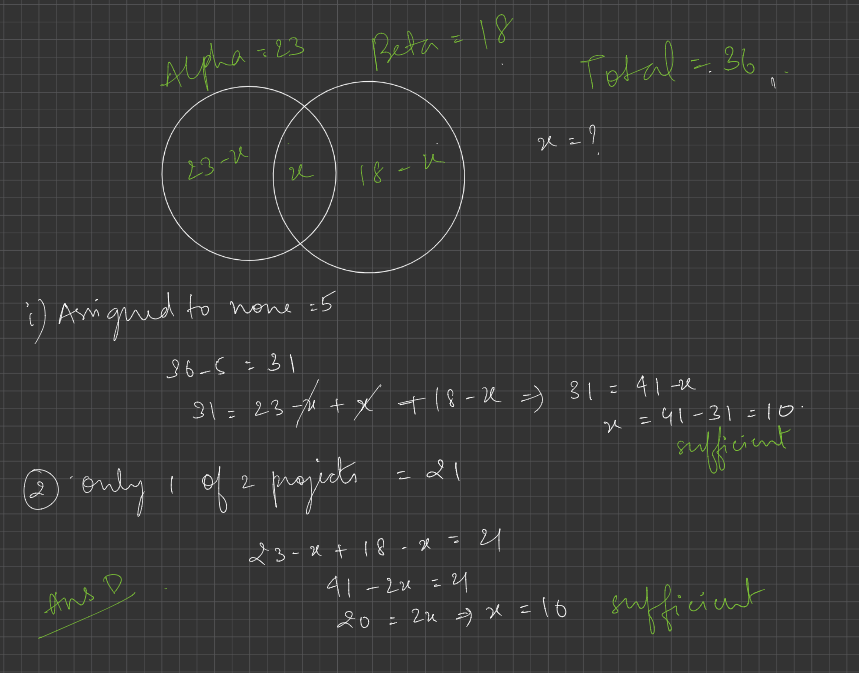 Alpha = 23
Beta = 18
Total = 36
x = ?
23-x
x
18 - x
i) Assigned to none = 5
36-5 = 31
31 = 23 - x + x + 18 - x ⇒ 31 = 41 - x
x = 41 - 31 = 10.
sufficient
② only 1 of 2 projects = 21
23 - x + 18 - x = 21
41 - 2x = 21
20 = 2x ⇒ x = 10
sufficient
Ans D